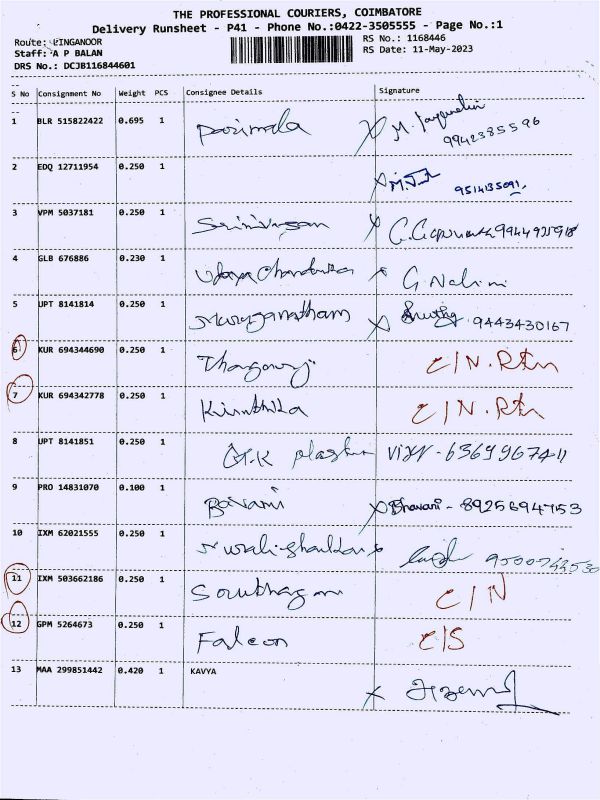 THE PROFESSIONAL COURIERS, COIMBATORE
Delivery Runsheet - P41 - Phone No.:0422-3505555 - Page No.:1
Route: LINGANOOR
RS No.: 1168446
Staff: A P BALAN
RS Date: 11-May-2023
DRS No.: DCJB116844601
S No Consignment No Weight PCS Consignee Details Signature
1 BLR 515822422 0.695 1 Parimala M. 9942385596
2 EDQ 12711954 0.250 1 9514135091
3 VPM 5037181 0.250 1 Srinivasan
4 GLB 676886 0.230 1 G Nalini
5 UPT 8141814 0.250 1 9443430167
6 KUR 694344690 0.250 1 C/N. Rtn
7 KUR 694342778 0.250 1 Kiruthika C/N. Rtn
8 UPT 8141851 0.250 1
9 PRO 14831070 0.100 1 Bavani Bhavani - 8925694753
10 IXM 62021555 0.250 1
11 IXM 503662186 0.250 1 C/N
12 GPM 5264673 0.250 1 Falcon C/S
13 MAA 299851442 0.420 1 KAVYA